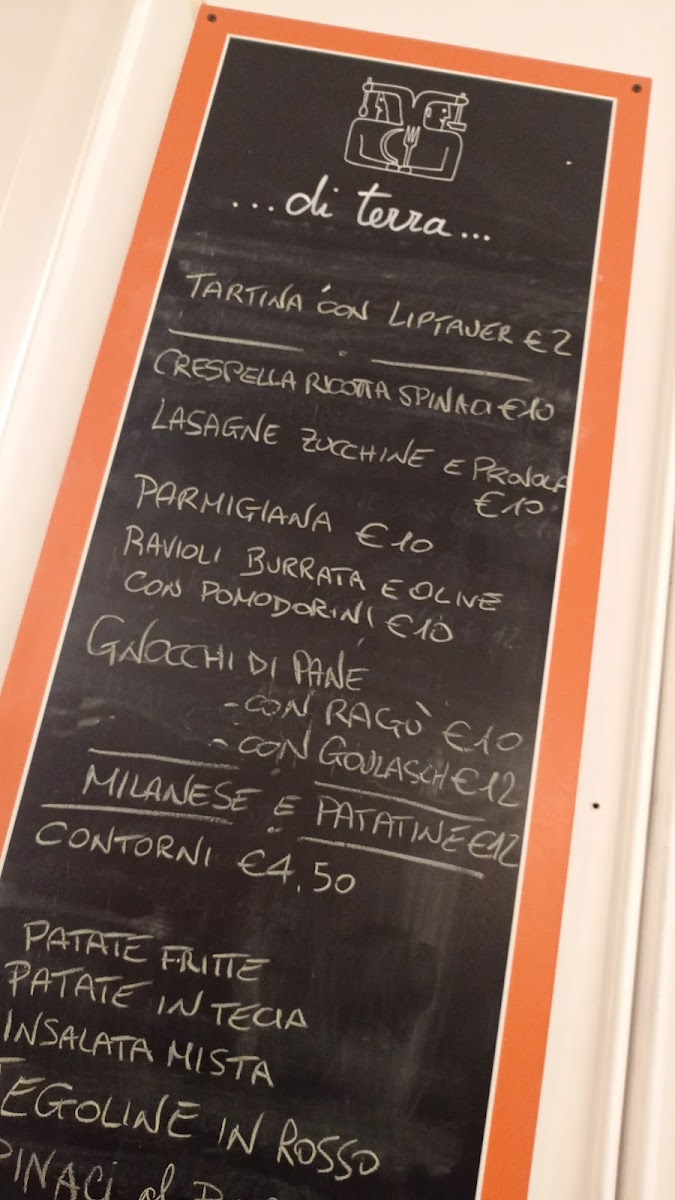 ...di terra...
TARTINA CON LIPTAUER €2
CRESPELLA RICOTTA SPINACI €10
LASAGNE ZUCCHINE E PROVOLA
€10
PARMIGIANA €10
RAVIOLI BURRATA E OLIVE
CON POMODORINI €10
GNOCCHI DI PANE
-CON RAGÙ €10
-CON GOULASCH €12
MILANESE E PATATINE €12
CONTORNI €4,50
PATATE FRITTE
PATATE IN TECIA
INSALATA MISTA
TEGOLINE IN ROSSO
SPINACI al